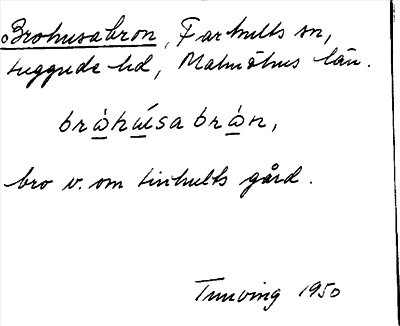 Brohusabron, Farhults sn,
Luggude hd, Malmöhus län.
bròhúsa bròn,
bro v. om Linhults gård.
Tunving 1950